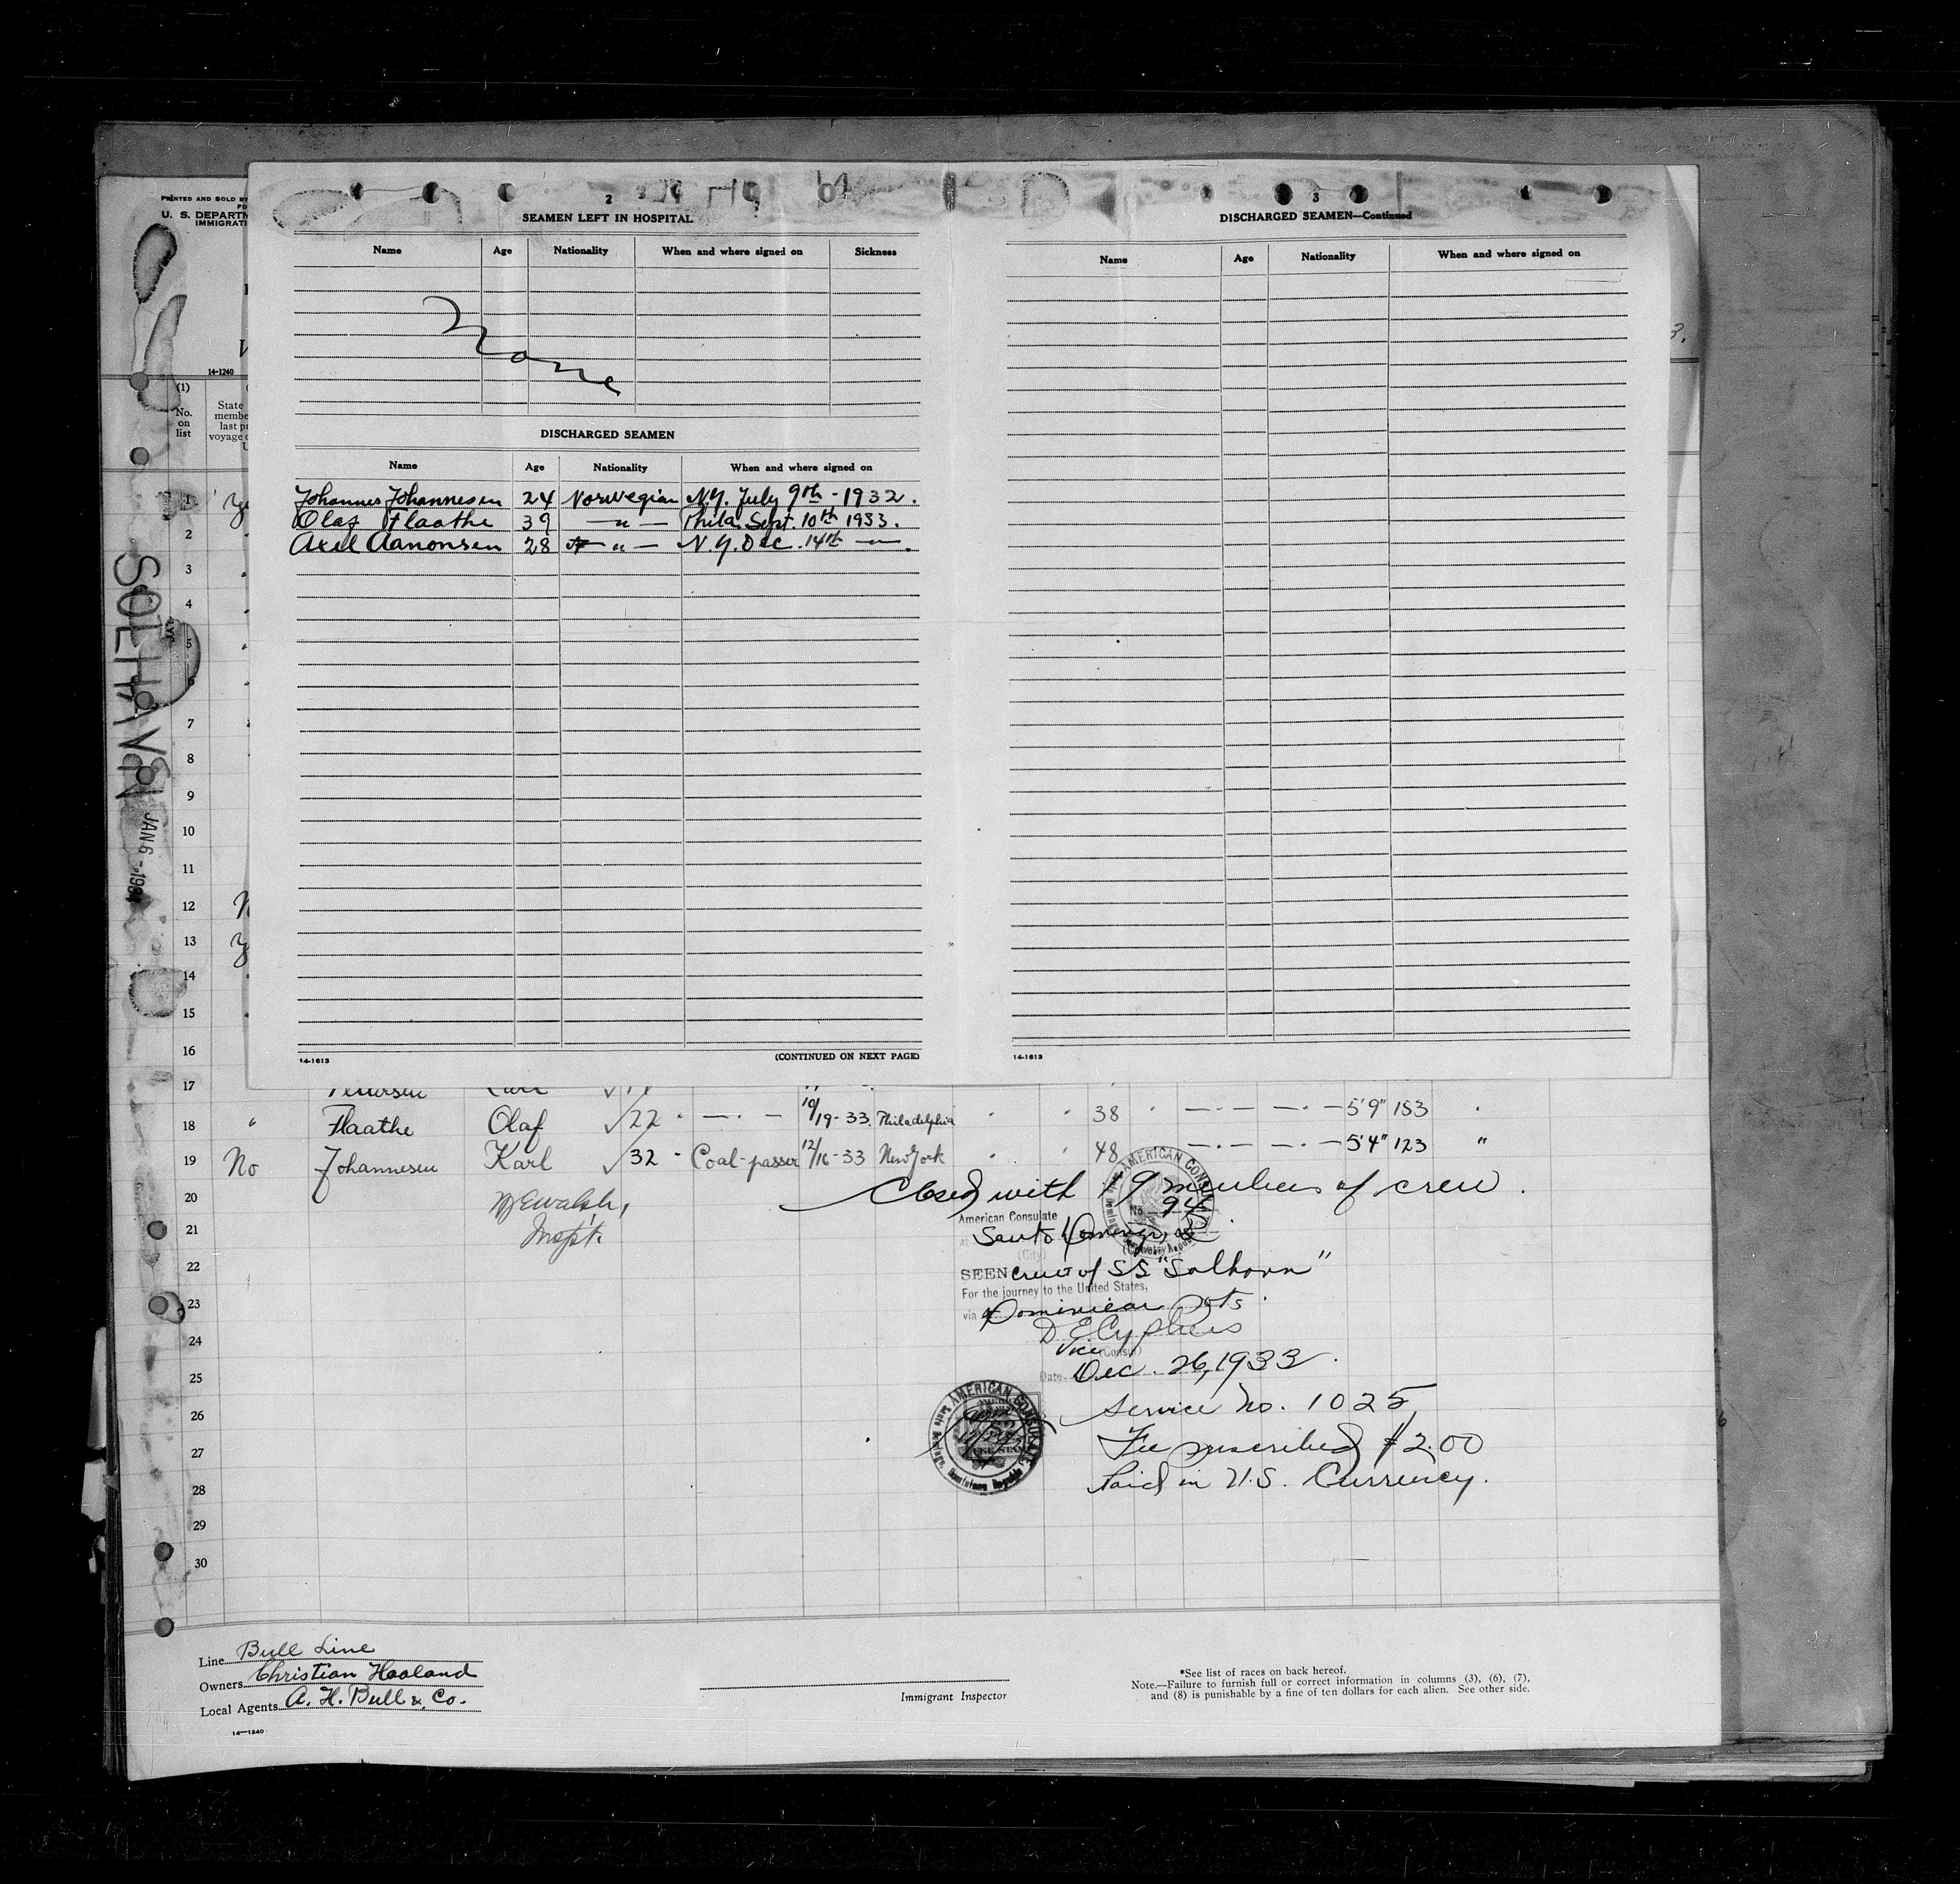 2
SEAMEN LEFT IN HOSPITAL
Name Age Nationality When and where signed on Sickness
None
DISCHARGED SEAMEN
Name Age Nationality When and where signed on
Johannes Johannesen 24 Norwegian N.Y. July 9th - 1932.
Olaf Flaathe 39 — " — Phila. Sept. 10th 1933.
Axel Aanonsen 28 — " — N.Y. Dec. 14th — " — .
14-1613 (CONTINUED ON NEXT PAGE)
3
DISCHARGED SEAMEN—Continued
Name Age Nationality When and where signed on
14-1613
PRINTED AND SOLD BY
U. S. DEPARTM
IMMIGRATI
14-1240
(1)
No. on list
State
membe
last pr
voyage
SOLHAVN
JAN 6 - 1934
1
2
3
4
5
6
7
8
9
10
11
12
13
14
15
16
17
18 " Flaathe Olaf √22 10/19-33. Philadelphia 38 5'9" 153
19 No Johannesen Karl √32 Coal-passer 12/16-33 New York 48 5'4" 123 "
20
21
22
23
24
25
26
27
28
29
30
W E Walsh,
Inspt.
Closed with 19 members of crew.
AMERICAN CONSUL
No. 94
American Consulate
at Santo Domingo,
(City) (Country)
SEEN crew of SS "Solhavn"
For the journey to the United States,
via Dominican Pts.
Vice (Consul)
Date Dec. 26, 1933.
Service No. 1025
Fee prescribed $2.00
Paid in U.S. Currency.
AMERICAN CONSULATE
Dominican Republic
Line Bull Line
Owners Christian Haaland
Local Agents A. H. Bull & Co.
14—1240
Immigrant Inspector
*See list of races on back hereof.
Note.—Failure to furnish full or correct information in columns (3), (6), (7),
and (8) is punishable by a fine of ten dollars for each alien. See other side.